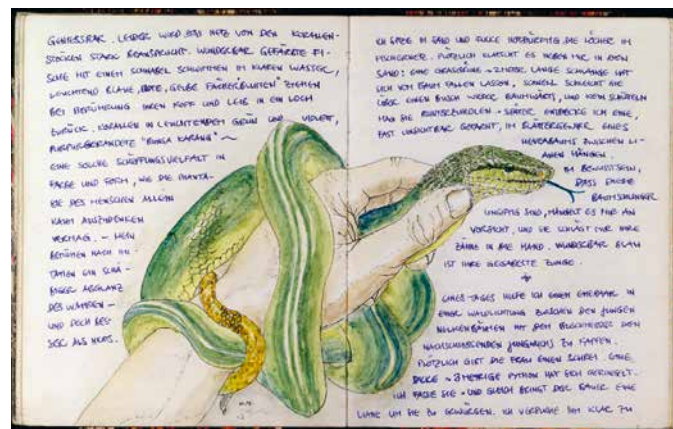 GENIESSBAR. LEIDER WIRD DAS NETZ VON DEN KORALLEN-
STÖCKEN STARK BEANSPRUCHT. WUNDERBAR GEFÄRBTE FI-
SCHE MIT EINEM SCHNABEL SCHWIMMEN IM KLAREN WASSER,
LEUCHTEND BLAUE, ROTE, GELBE FÄCHERBLUTEN ZIEHEN
BEI BERÜHRUNG IHREN KOPF UND LEIB IN EIN LOCH
ZURÜCK. KORALLEN IN LEUCHTENDEM GRÜN UND VIOLETT,
PURPURGERANDETE "BUNGA KARANG" ~
EINE SOLCHE SCHÖPFUNGSVIELFALT IN
FARBE UND FORM, WIE DIE PHANTA-
SIE DES MENSCHEN ALLEIN
KAUM AUSZUDENKEN
VERMAG. – MEIN
BEMÜHEN NACH IMI-
TATION EIN SCHÄ-
BIGER ABGLANZ
DES WAHREN –
UND DOCH BES-
SER ALS NICHTS.
ICH SITZE IM SAND UND GUCKE IN DIE LÖCHER IM
PLÖTZLICH KLATSCHT ES NEBEN MIR IN DEN
SAND: EINE GRASGRÜNE ~ 2 METER LANGE SCHLANGE HAT
SICH VOM BAUM FALLEN LASSEN, SCHNELL SCHLEICHT SIE
ÜBER EINEN BUSCH WIEDER BAUMWÄRTS, UND KEIN SCHÜTTELN
MAG SIE RUNTERZUHOLEN. – SPÄTER ENTDECKE ICH EINE,
FAST UNSICHTBAR GETARNT, IM BLÄTTERGEWIRR EINES
ZWISCHEN LI-
ANEN HÄNGEN.
IM BEWUSSTSEIN,
DASS DIESE
BAUMSCHLANGEN
UNGIFTIG SIND, MANGELT ES MIR AN
VORSICHT, UND SIE SCHLÄGT MIR IHRE
ZÄHNE IN DIE HAND. WUNDERBAR BLAU
IST IHRE GEGABELTE ZUNGE.
EINES TAGES HELFE ICH EINEM EHEPAAR IN
EINER WALDLICHTUNG ZWISCHEN DEN JUNGEN
NELKENBÄUMEN MIT DEM BUSCHMESSER DEN
NACHSCHIESSENDEN JUNGWUCHS ZU KAPPEN.
PLÖTZLICH GIBT DIE FRAU EINEN SCHREI. EINE
DICKE ~ 3 METRIGE PYTHON HAT SICH GERINGELT.
ICH FASSE SIE – UND GLEICH BRINGT DER BAUER EINE
LIANE UM SIE ZU ERWÜRGEN. ICH VERSUCHE IHM KLAR ZU